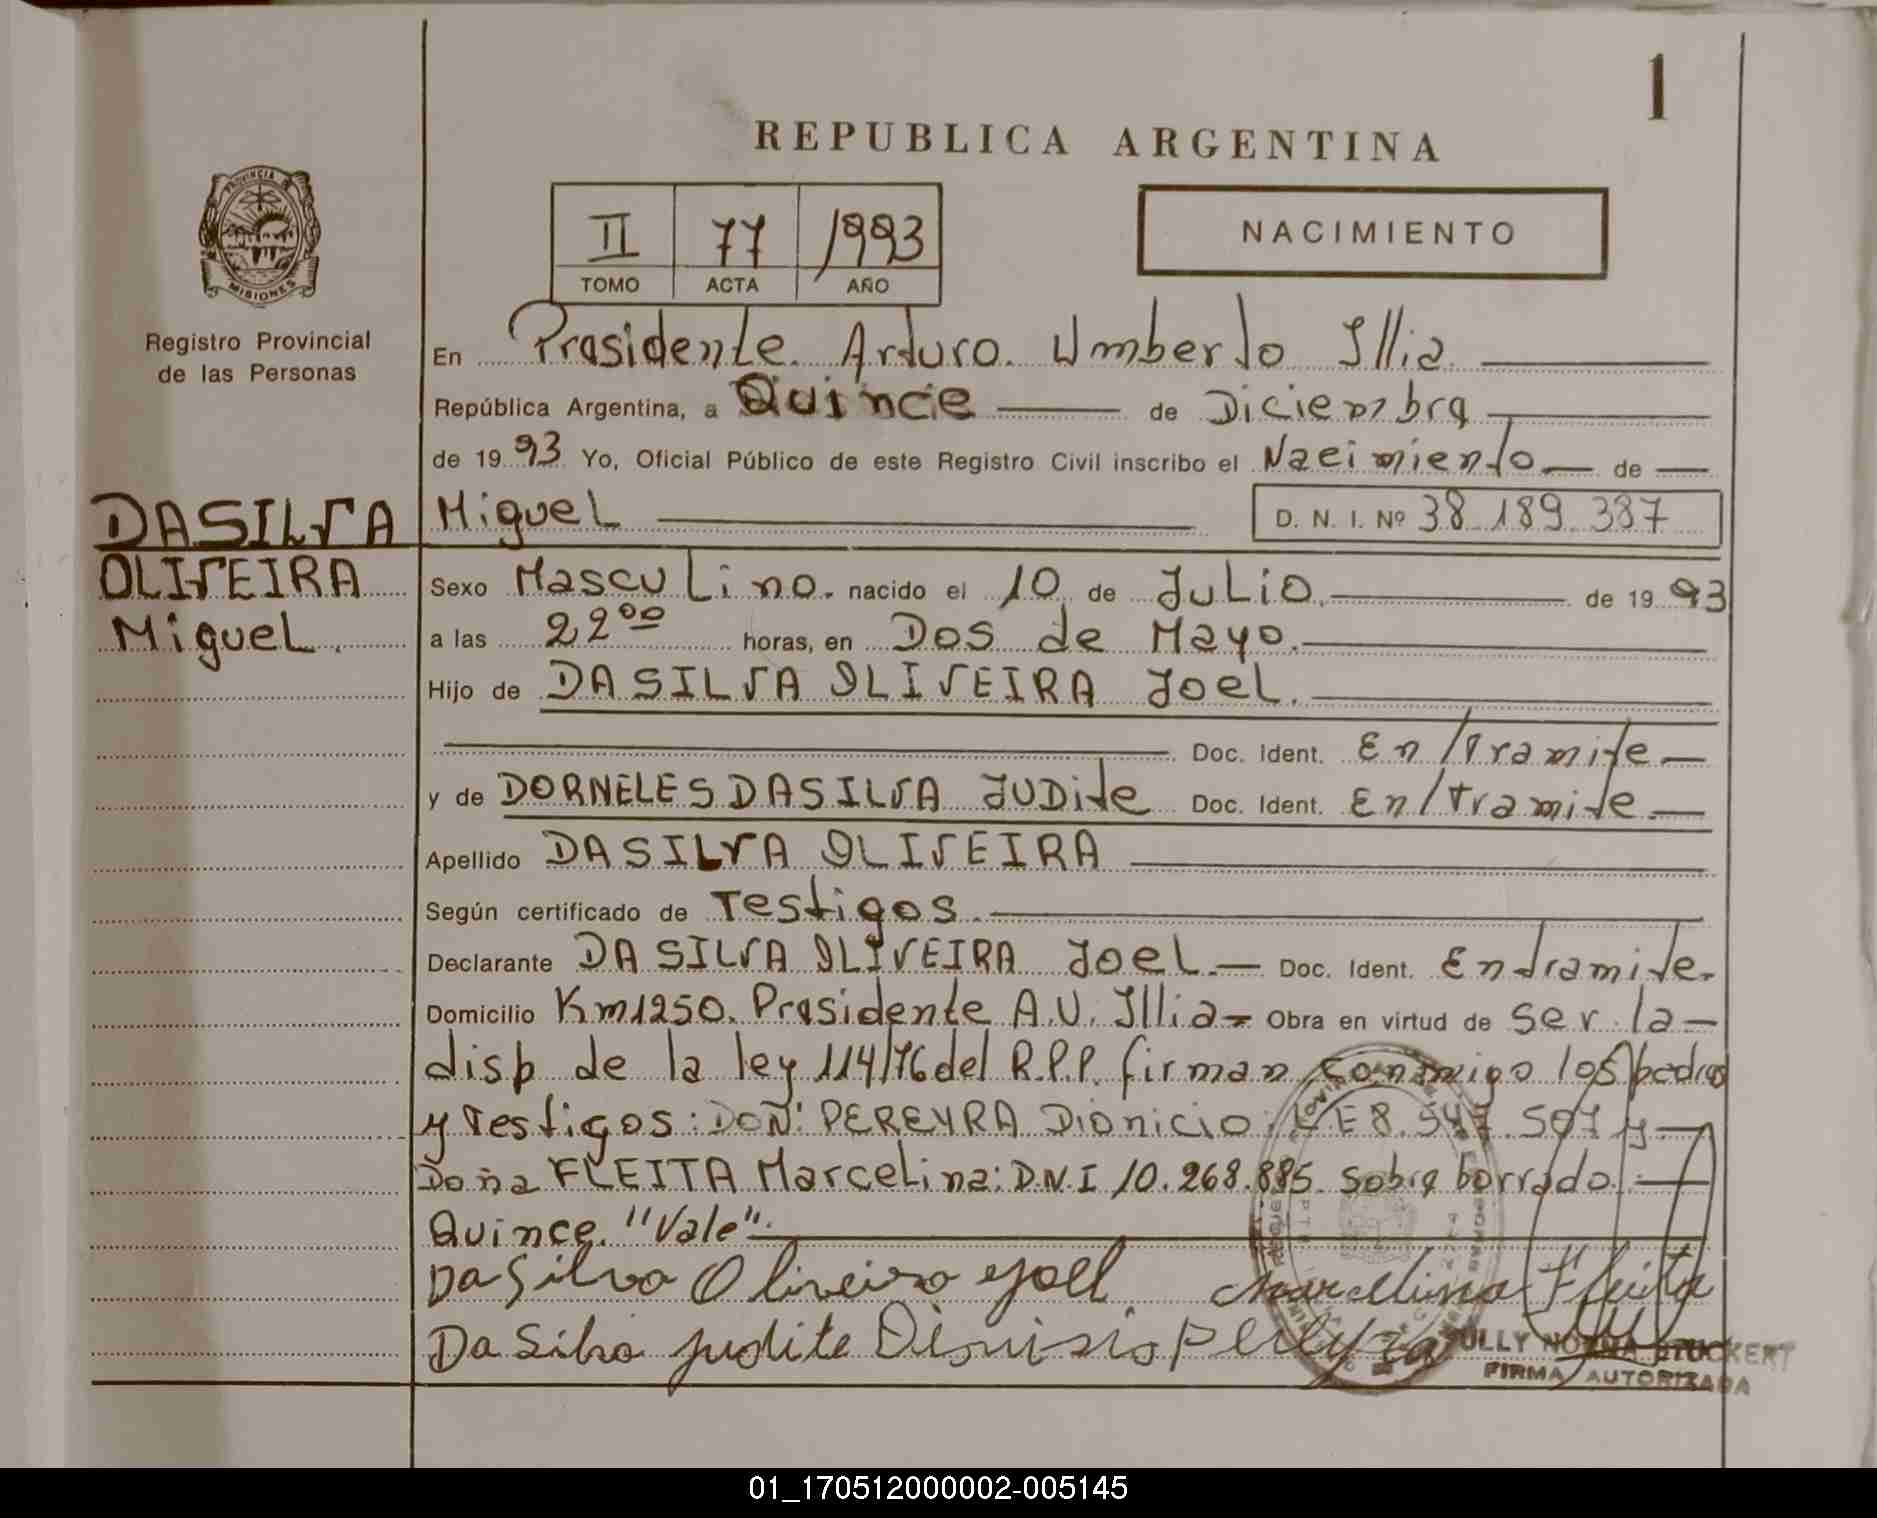 1
REPUBLICA ARGENTINA
PROVINCIA DE
MISIONES
Registro Provincial
de las Personas
II 77 1993
TOMO ACTA AÑO
NACIMIENTO
En Presidente Arturo Umberto Illia
República Argentina, a Quince de Diciembre
de 1993 Yo, Oficial Público de este Registro Civil inscribo el Nacimiento de
DASILVA Miguel D. N. I. Nº 38.189.387
OLIVEIRA Sexo Masculino. nacido el 10 de Julio de 1993
Miguel. a las 22ºº horas, en Dos de Mayo.
Hijo de DASILVA OLIVEIRA Joel.
Doc. Ident. En/tramite
y de DORNELES DASILVA JUDite Doc. Ident. En/tramite.
Apellido DASILVA OLIVEIRA
Según certificado de Testigos.
Declarante DASILVA OLIVEIRA Joel. Doc. Ident. En tramite.
Domicilio Km1250. Presidente A.U. Illia Obra en virtud de ser la
disp de la ley 114/76 del R.P.P. firman conmigo los padres
y Testigos: DOÑ: PEREYRA Dionicio: LE 8.547.507 y
Doña FLEITA Marcelina: D.N.I 10.268.885. Sobre borrado.
Quince. "Vale".
Da Silva Oliveira Joel Marcelina Fleita
Da Silva Judite Dionisio Pereyra
STUCKERT
FIRMA AUTORIZADA
01_170512000002-005145